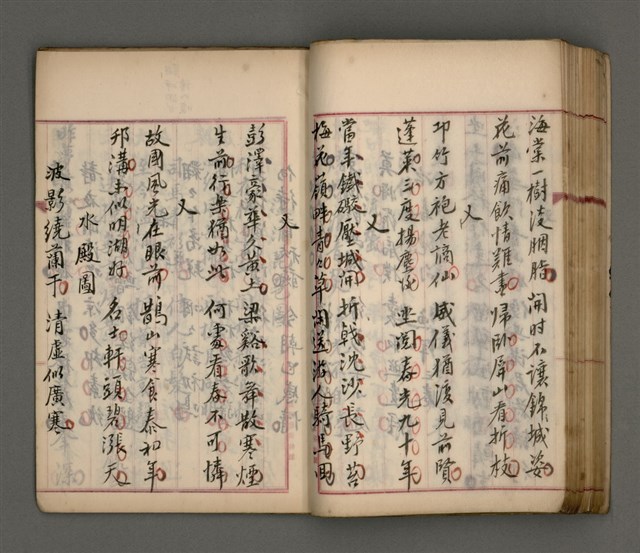 海棠一樹淡胭脂 開時不讓錦城姿
花前痛飲情難盡 歸卧屏山看折枝
又
卭竹方袍老謫仙 威儀猶復見前賢
蓬萊三度揚塵後 坐閲春光九十年
又
當年鐵礮壓城開 折戟沈沙長野苔
梅花嶺畔青青草 閒送游人騎馬回
又
彭澤豪華久黃土 梁谿歌舞散寒煙
生前行樂猶如此 何處看春不可憐
又
故國風光在眼前 鵲山寒食泰和年
邗溝土似明湖好 名士軒頭碧漲天
水殿圖
波影繞蘭干 清虛似廣寒